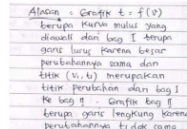 Alasan = Grafik t = f(v)
berupa kurva mulus yang
diawali dari bag I terupa
garis lurus karena besar
perubahannya sama dan
titik (V₁, t₁) merupakan
titik perubahan dari bag I
ke bag II. Grafik bag II
terupa garis lengkung karena
perubahannya tidak sama